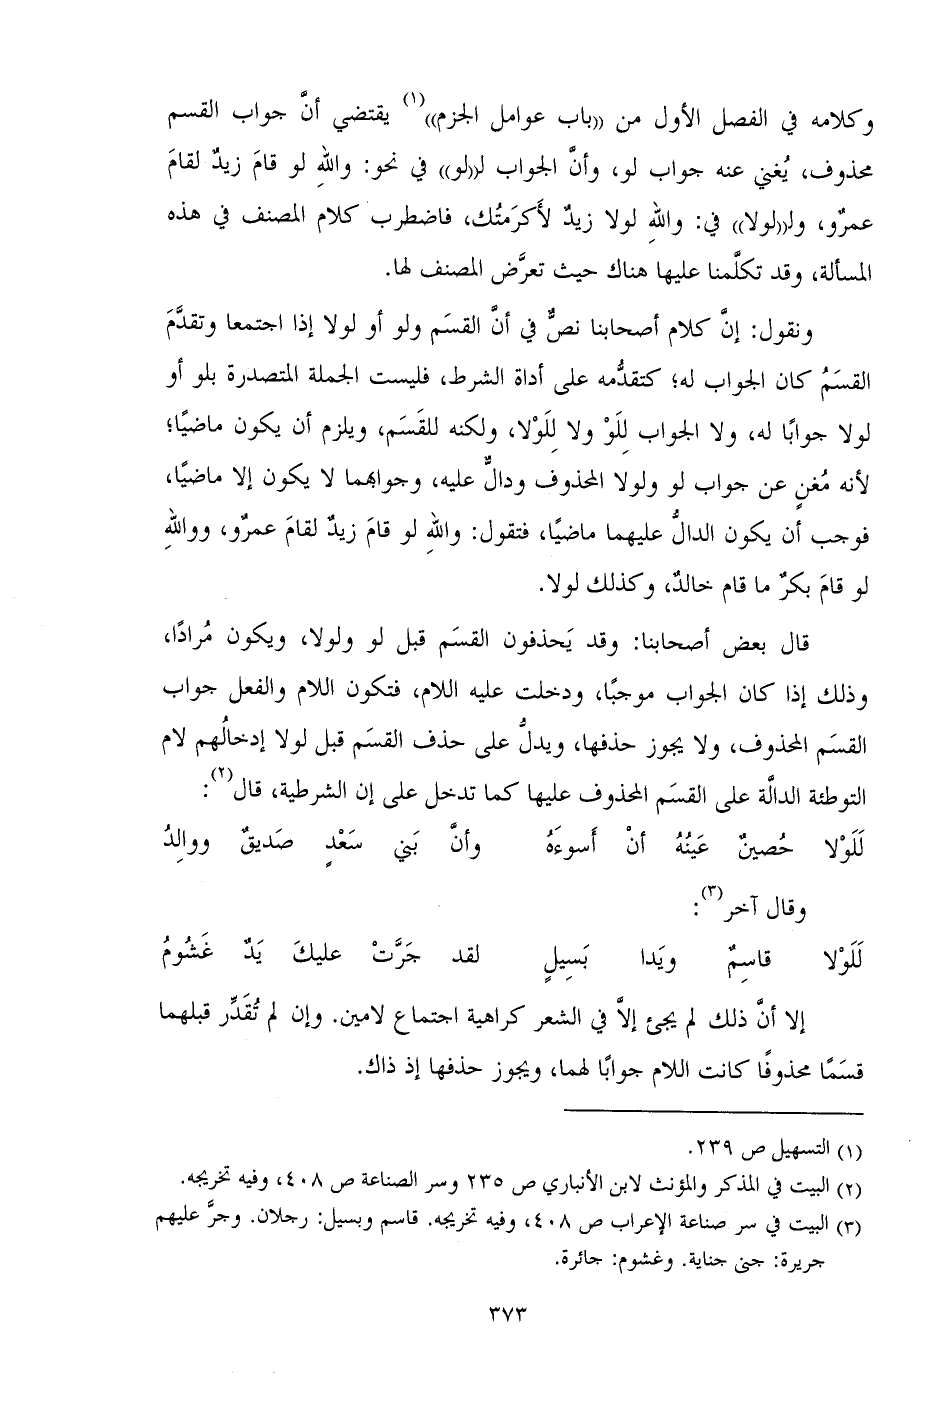 وكلامه في الفصل الأول من ((باب عوامل الجزم))(١) يقتضي أنَّ جواب القسم
محذوف، يُغني عنه جواب لو، وأنَّ الجواب لـ((لو)) في نحو: واللهِ لو قامَ زيدٌ لقامَ
عمرٌو، ولـ((لولا)) في: واللهِ لولا زيدٌ لأَكرَمتُك، فاضطرب كلام المصنف في هذه
المسألة، وقد تكلَّمنا عليها هناك حيث تعرَّض المصنف لها.
ونقول: إنَّ كلام أصحابنا نصٌّ في أنَّ القسَم ولو أو لولا إذا اجتمعا وتقدَّمَ
القسَمُ كان الجواب له؛ كتقدُّمه على أداة الشرط، فليست الجملة المتصدرة بلو أو
لولا جوابًا له، ولا الجواب لِلَوْ ولا لِلَوْلا، ولكنه للقَسَم، ويلزم أن يكون ماضيًا؛
لأنه مُغنٍ عن جواب لو ولولا المحذوف ودالٌّ عليه، وجوابهما لا يكون إلا ماضيًا،
فوجب أن يكون الدالُّ عليهما ماضيًا، فتقول: واللهِ لو قامَ زيدٌ لقامَ عمرٌو، وواللهِ
لو قامَ بكرٌ ما قام خالدٌ، وكذلك لولا.
قال بعض أصحابنا: وقد يَحذفون القسَم قبل لو ولولا، ويكون مُرادًا،
وذلك إذا كان الجواب موجبًا، ودخلت عليه اللام، فتكون اللام والفعل جواب
القسَم المحذوف، ولا يجوز حذفها، ويدلُّ على حذف القسَم قبل لولا إدخالُهم لام
التوطئة الدالَّة على القسَم المحذوف عليها كما تدخل على إن الشرطية، قال(٢):
لَلَوْلا حُصينٌ عَينُهُ أنْ أَسوءَهُ وأنَّ بَني سَعْدٍ صَديقٌ ووالِدُ
وقال آخر(٣):
لَلَوْلا قاسِمٌ ويَدا بَسِيلٍ لقد جَرَّتْ عليكَ يَدٌ غَشُومُ
إلا أنَّ ذلك لم يجئ إلاَّ في الشعر كراهية اجتماع لامين. وإن لم تُقَدِّر قبلهما
قسَمًا محذوفًا كانت اللام جوابًا لهما، ويجوز حذفها إذ ذاك.
(١) التسهيل ص ٢٣٩.
(٢) البيت في المذكر والمؤنث لابن الأنباري ص ٢٣٥ وسر الصناعة ص ٤٠٨، وفيه تخريجه.
(٣) البيت في سر صناعة الإعراب ص ٤٠٨، وفيه تخريجه. قاسم وبسيل: رجلان. وجرَّ عليهم
جريرة: جنى جناية. وغشوم: جائرة.
٣٧٣